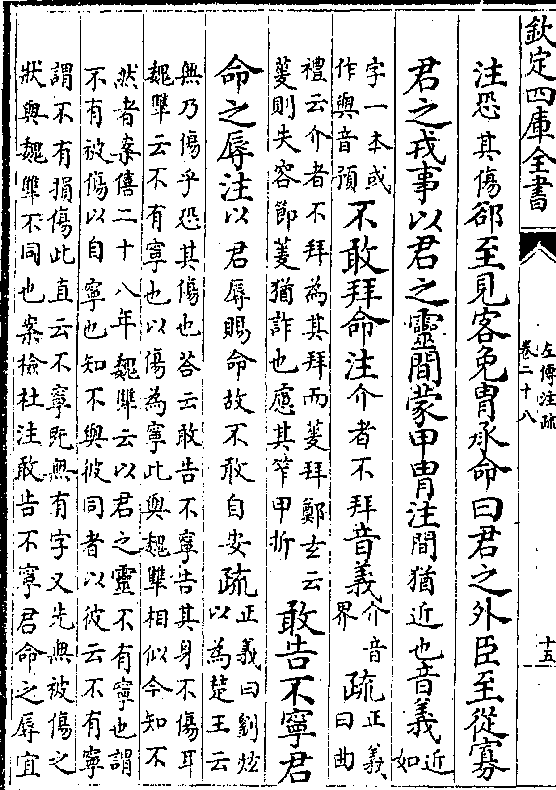 欽定四庫全書
左傳注疏
卷二十八
十五
注恐其傷郤至見客免胄承命曰君之外臣至從寡
君之戎事以君之靈間蒙甲胄注間猶近也音義近
如
字一本或
作與音預不敢拜命注介者不拜音義介音
界疏正義
曰曲
禮云介者不拜為其拜而蓌拜鄭玄云
蓌則失容節蓌猶詐也慮其窄甲折
敢告不寧君
命之辱注以君辱賜命故不敢自安疏正義曰劉炫
以為楚王云
無乃傷乎恐其傷也荅云敢告不寧告其身不傷耳
魏犨云不有寧也以傷為寧此與魏犨相似今知不
然者案僖二十八年魏犨云以君之靈不有寧也謂
不有被傷以自寧也知不與彼同者以彼云不有寧
謂不有損傷此直云不寧既無有字又先無被傷之
狀與魏犨不同也案檢杜注敢告不寧君命之辱宜